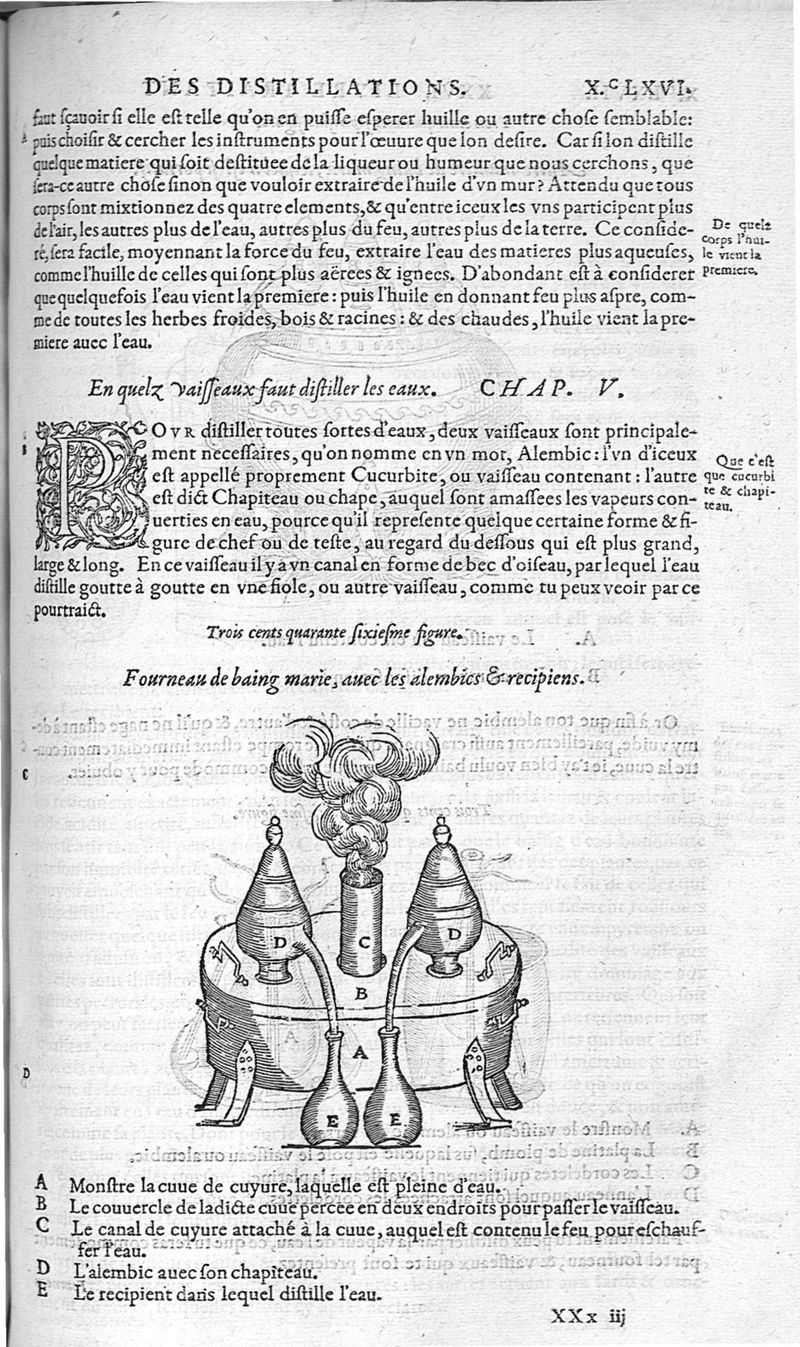 DES DISTILLATIONS. X.ᶜLXVI.
faut sçauoir si elle est telle qu'on en puisse esperer huille ou autre chose semblable:
puis choisir & cercher les instruments pour l'œuure que lon desire. Car si lon distille
quelque matiere qui soit destituee de la liqueur ou humeur que nous cerchons, que
sera-ce autre chose sinon que vouloir extraire de l'huile d'vn mur? Attendu que tous
corps sont mixtionnez des quatre elements, & qu'entre iceux les vns participent plus
de l'air, les autres plus de l'eau, autres plus du feu, autres plus de la terre. Ce conside-
ré, sera facile, moyennant la force du feu, extraire l'eau des matieres plus aqueuses,
comme l'huille de celles qui sont plus aërees & ignees. D'abondant est à considerer
que quelquefois l'eau vient la premiere: puis l'huile en donnant feu plus aspre, com-
me de toutes les herbes froides, bois & racines: & des chaudes, l'huile vient la pre-
miere auec l'eau.
De quels
corps l'hui-
le vient la
premiere.
En quelz vaisseaux faut distiller les eaux. CHAP. V.
POVR distiller toutes sortes d'eaux, deux vaisseaux sont principale-
ment necessaires, qu'on nomme en vn mot, Alembic: l'vn d'iceux
est appellé proprement Cucurbite, ou vaisseau contenant: l'autre
est dict Chapiteau ou chape, auquel sont amassees les vapeurs con-
uerties en eau, pource qu'il represente quelque certaine forme & fi-
gure de chef ou de teste, au regard du dessous qui est plus grand,
large & long. En ce vaisseau il y a vn canal en forme de bec d'oiseau, par lequel l'eau
distille goutte à goutte en vne fiole, ou autre vaisseau, comme tu peux veoir par ce
pourtraict.
Que c'est
que cucurbi
te & chapi-
teau.
Trois cents quarante sixiesme figure.
Fourneau de baing marie, auec les alembics & recipiens.
C
D C D
B
A
D
E E
A Monstre la cuue de cuyure, laquelle est pleine d'eau.
B Le couuercle de ladicte cuue percee en deux endroits pour passer le vaisseau.
C Le canal de cuyure attaché à la cuue, auquel est contenu le feu pour eschauf-
fer l'eau.
D L'alembic auec son chapiteau.
E Le recipient dans lequel distille l'eau.
XXx iij